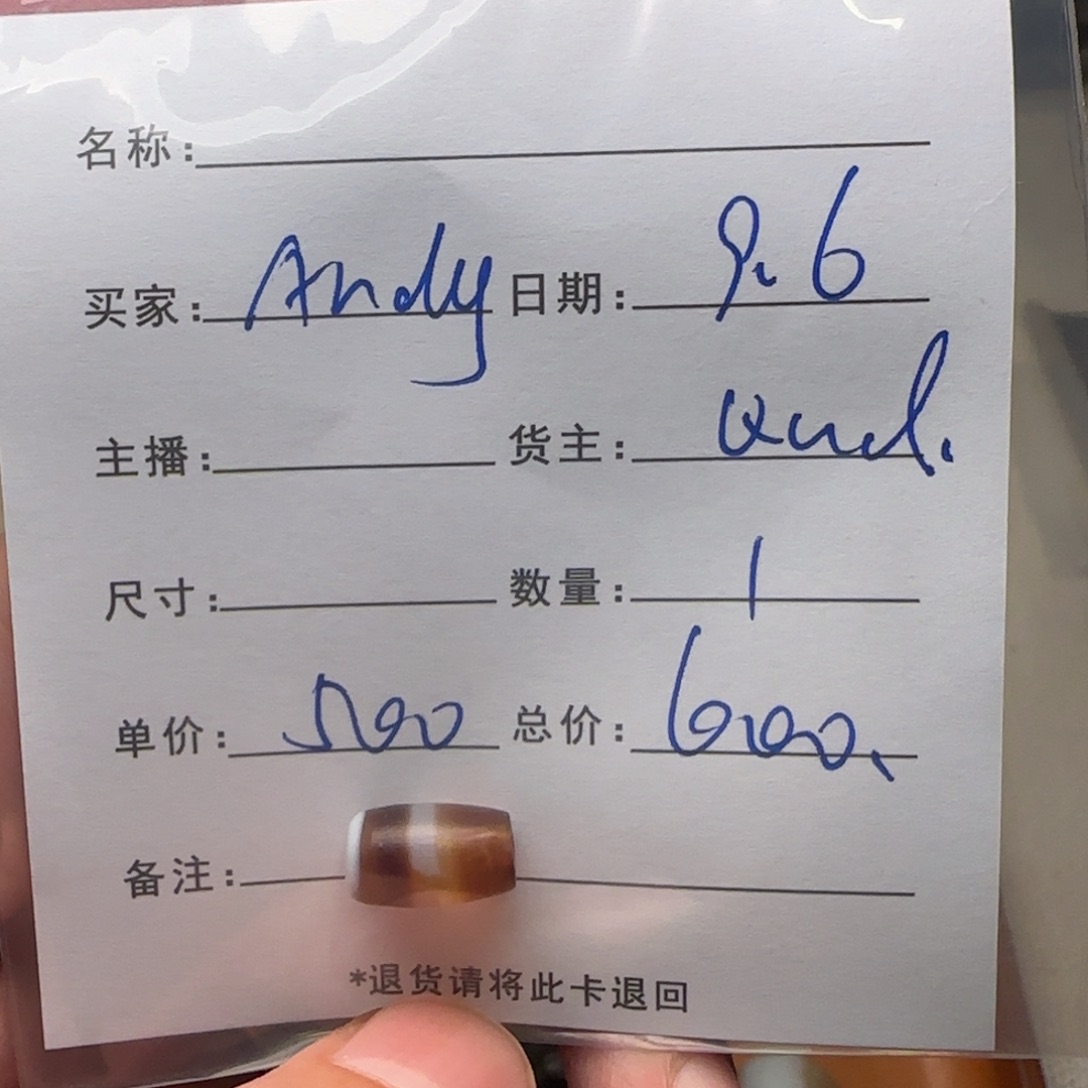 名称:
买家: Andy 日期: 9.6
主播: 货主:
尺寸: 数量: 1
单价: 500 总价: 600.
备注:
*退货请将此卡退回